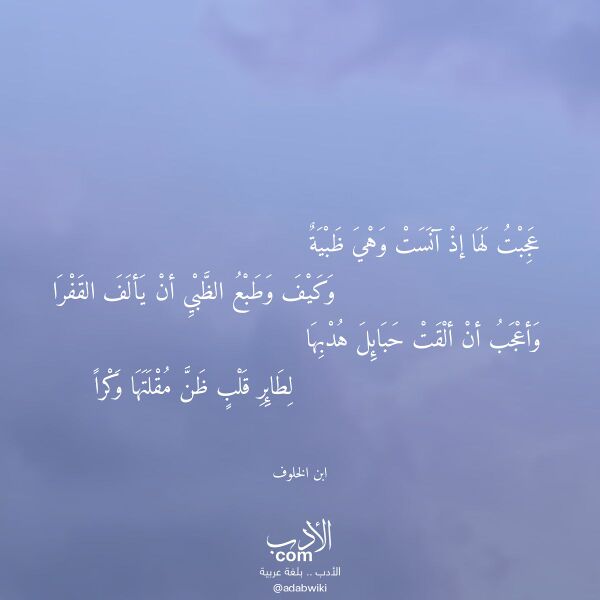 عَجِبْتُ لَهَا إذْ آنَسَتْ وَهْيَ ظَبْيَةٌ
وَكَيْفَ وَطَبْعُ الظَّبْيِ أنْ يَألَفَ القَفْرَا
وَأعْجَبُ أنْ ألْقَتْ حَبَايِلَ هُدْبِهَا
لِطَايِرِ قَلْبٍ ظَنَّ مُقْلَتَهَا وَكْراً
ابن الخلوف
الأدب
com
الأدب .. بلغة عربية
@adabwiki